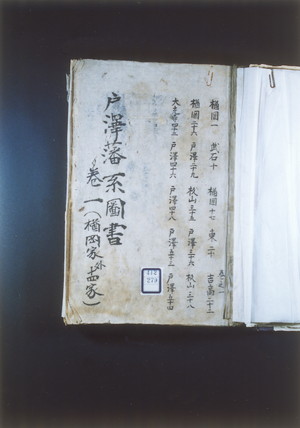 巻之一
楢岡一 武石十 楢岡十七 東二十 吉高二十一
楢岡二十八 戸澤二十九 秋山三十五 戸澤三十六 秋山三十八
戸澤四十六 戸澤四十八 戸澤五十一 戸澤五十四
戸澤藩系圖書
巻一(楢岡家外